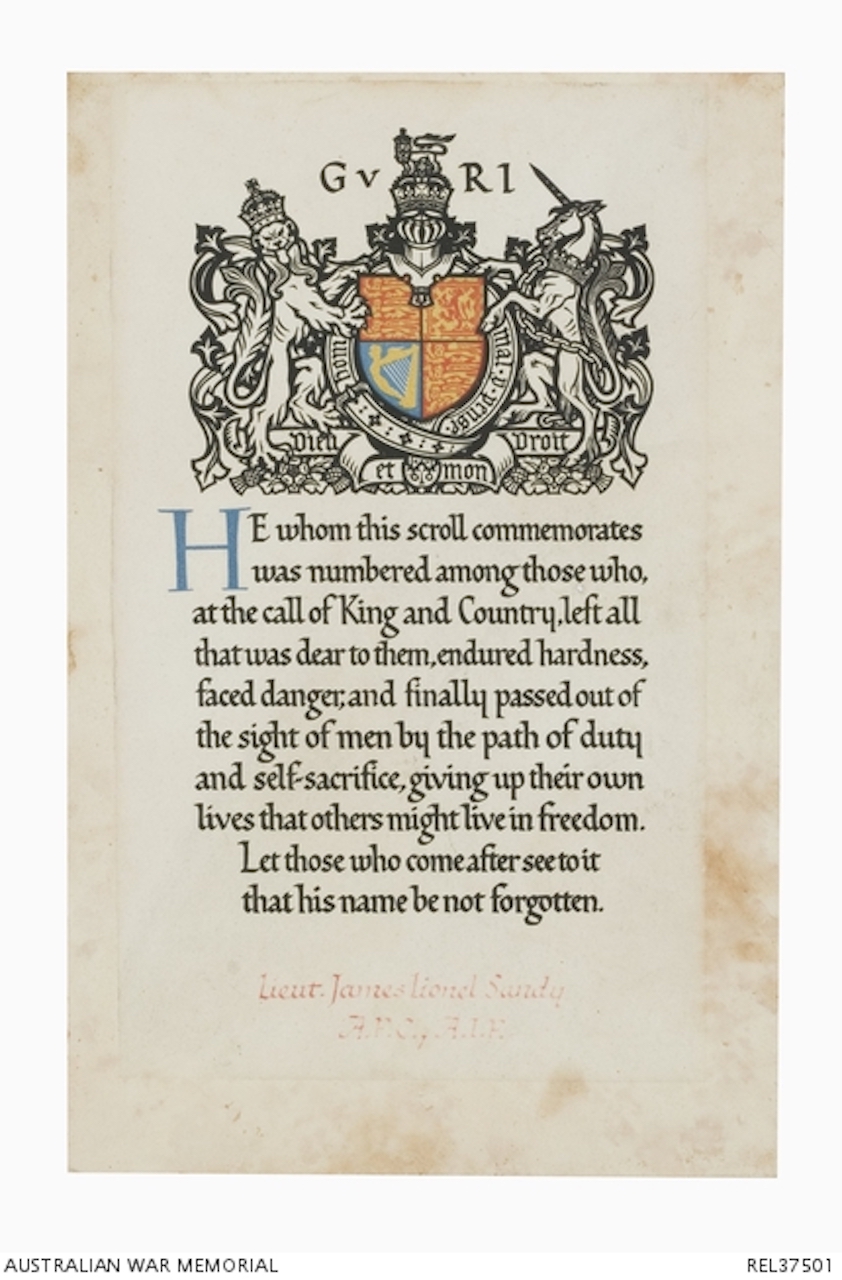 GV RI
Honi
mal·y·pense
Dieu Droit
et mon
HE whom this scroll commemorates
was numbered among those who,
at the call of King and Country, left all
that was dear to them, endured hardness,
faced danger, and finally passed out of
the sight of men by the path of duty
and self-sacrifice, giving up their own
lives that others might live in freedom.
Let those who come after see to it
that his name be not forgotten.
Lieut. James Lionel Sandy
A.F.C., A.I.F.
AUSTRALIAN WAR MEMORIAL
REL37501